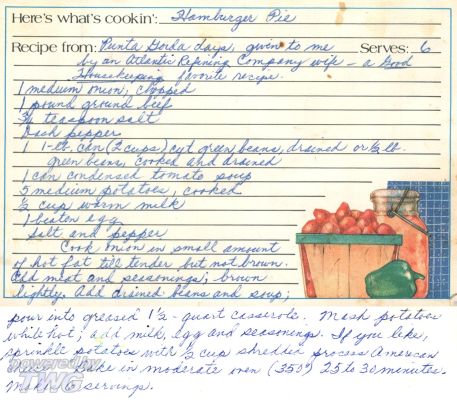 Here's what's cookin': Hamburger Pie
Recipe from: Punta Gorda days, given to me Serves: 6
by an Atlantic Refining Company wife - a Good
Housekeeping favorite recipe.
1 medium onion, chopped
1 pound ground beef
3/4 teaspoon salt
Dash pepper
1 1-lb. can (2 cups) cut green beans, drained or 1/2 lb.
green beans, cooked and drained
1 can condensed tomato soup
5 medium potatoes, cooked
1/2 cup warm milk
1 beaten egg
Salt and pepper
Cook onion in small amount
of hot fat till tender but not brown.
Add meat and seasonings; brown
lightly. Add drained beans and soup;
pour into greased 1 1/2-quart casserole. Mash potatoes
while hot; add milk, egg and seasonings. If you like,
sprinkle potatoes with 1/2 cup shredded process American
Bake in moderate oven (350°) 25 to 30 minutes.
Makes 6 servings.
powered by
TWG